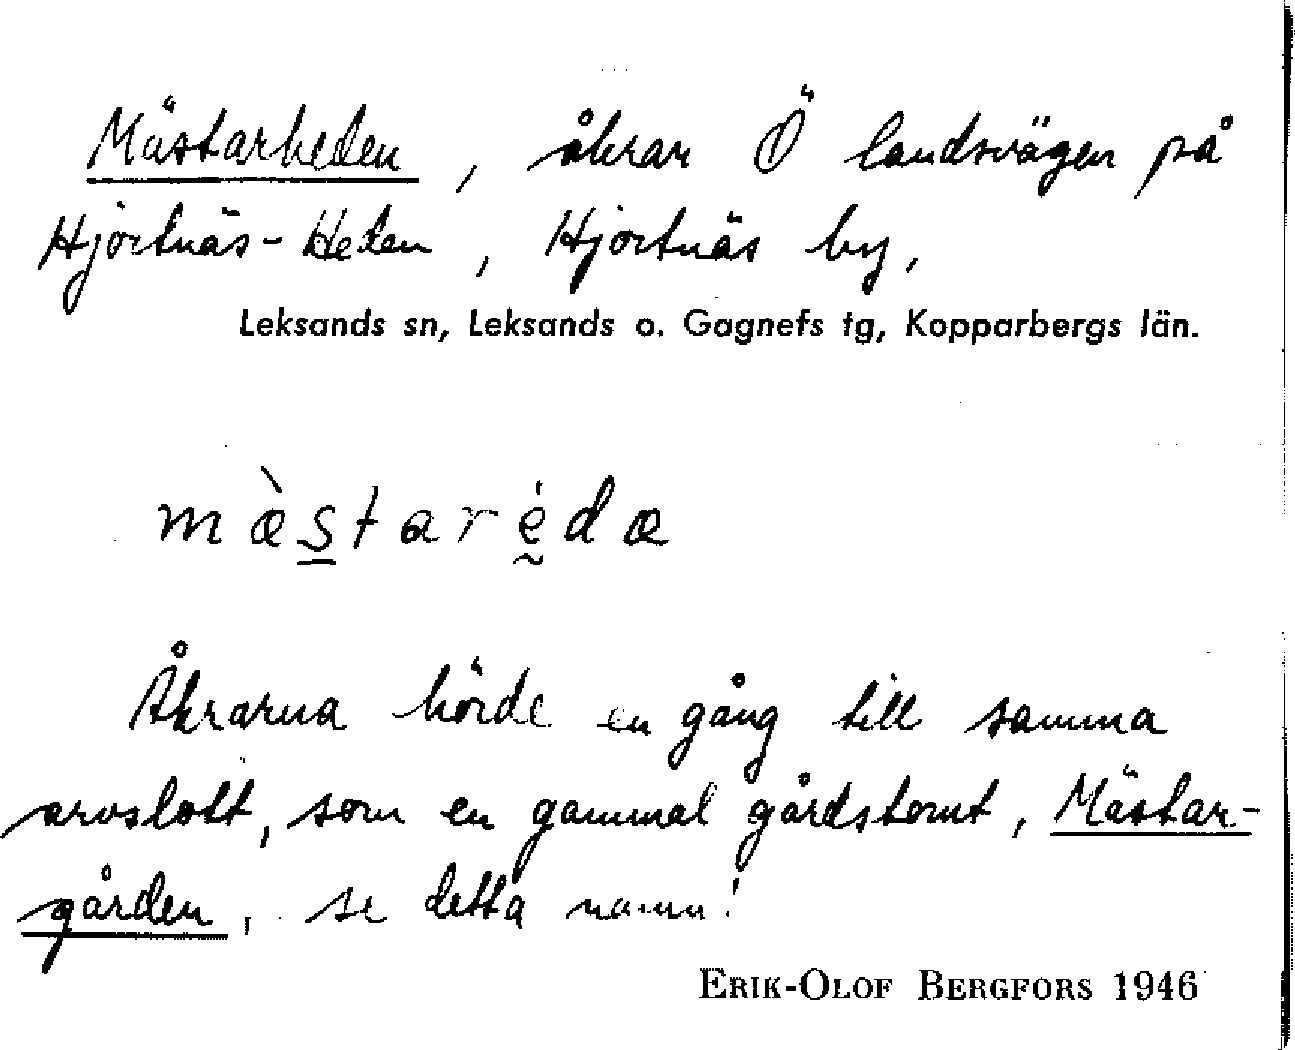 Mästarheden, åkrar Ö landsvägen på
Hjortnäs-Heden, Hjortnäs by,
Leksands sn, Leksands o. Gagnefs tg, Kopparbergs län.
mæ̀starėdæ
Åkrarna hörde en gång till samma
arvslott, som en gammal gårdstomt, Mästar-
gården, se detta namn!
ERIK-OLOF BERGFORS 1946